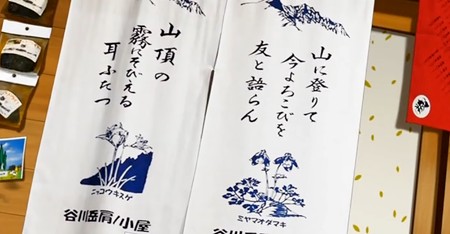 山に登りて
今よろこびを
友と語らん
ミヤマオダマキ
谷川岳
山頂の
霧にそびえる
耳ふたつ
ニッコウキスゲ
谷川岳肩ノ小屋